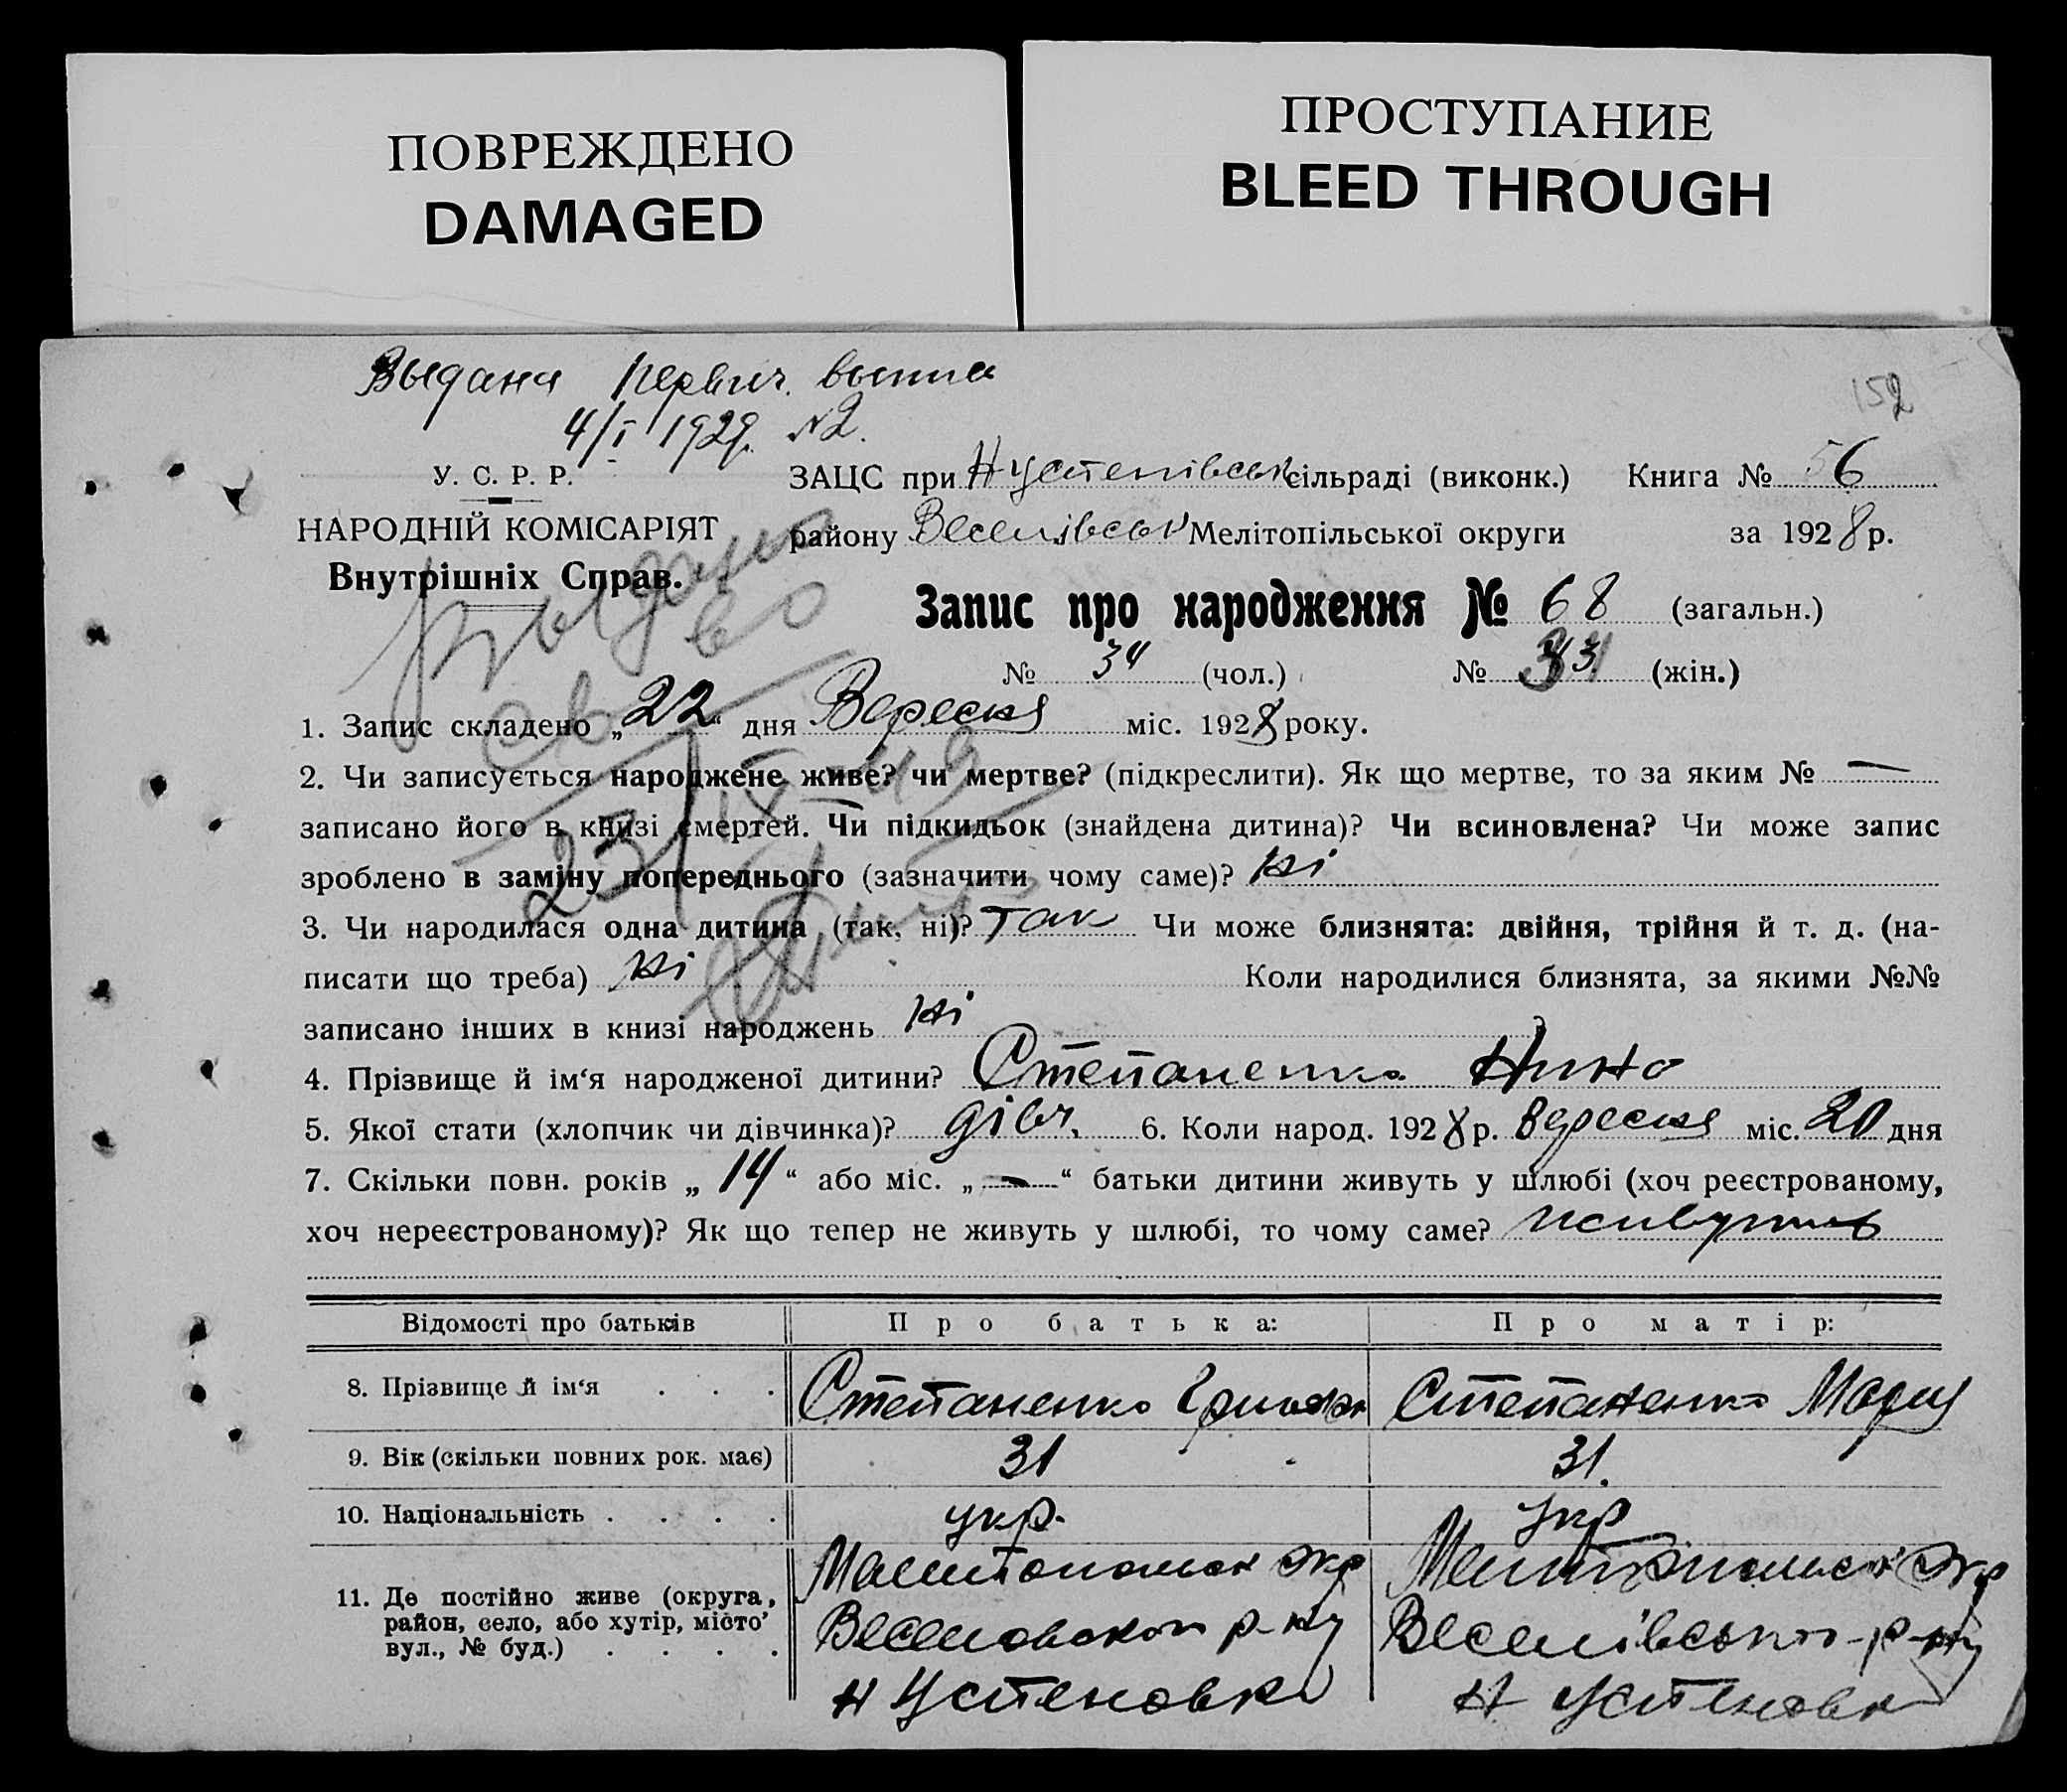 ПОВРЕЖДЕНО
DAMAGED
ПРОСТУПАНИЕ
BLEED THROUGH
Выдана первич. выписка
4/I 1929. №2.
152
У. С. Р. Р.
НАРОДНІЙ КОМІСАРІЯТ
Внутрішніх Справ.
ЗАЦС при Н Устенівськ сільраді (виконк.) Книга № 56
району Веселівськ Мелітопільської округи за 1928 р.
Запис про народження № 68 (загальн.)
№ 34 (чол.) № (жін.)
Выдано
св во
23/IX-49
1. Запис складено „22“ дня Вересня міс. 1928 року.
2. Чи записується народжене живе? чи мертве? (підкреслити). Як що мертве, то за яким № —
записано його в книзі смертей. Чи підкидьок (знайдена дитина)? Чи всиновлена? Чи може запис
зроблено в заміну попереднього (зазначити чому саме)? Ні
3. Чи народилася одна дитина (так, ні)? Так Чи може близнята: двійня, трійня й т. д. (на-
писати що треба) Ні Коли народилися близнята, за якими №№
записано інших в книзі народжень Ні ?
4. Прізвище й ім‘я народженої дитини? Степаненко Нина
5. Якої стати (хлопчик чи дівчинка)? дівч. 6. Коли народ. 1928 р. Вересня міс. 20 дня
7. Скільки повн. років „14“ або міс. „—“ батьки дитини живуть у шлюбі (хоч реєстрованому,
хоч нереєстрованому)? Як що тепер не живуть у шлюбі, то чому саме? живуть
Відомості про батьків Про батька: Про матір:
8. Прізвище й ім‘я . . . Степаненко Степаненко Мария
9. Вік (скільки повних рок. має) 31 31.
10. Національність . . . . укр. укр
11. Де постійно живе (округа,
район, село, або хутір, місто’
вул., № буд.) . . . .
Мелитопольск окр
Веселовского р-ну
Н Устеновка
Мелитопольск окр
Веселівського р-ну
Н Устеновк